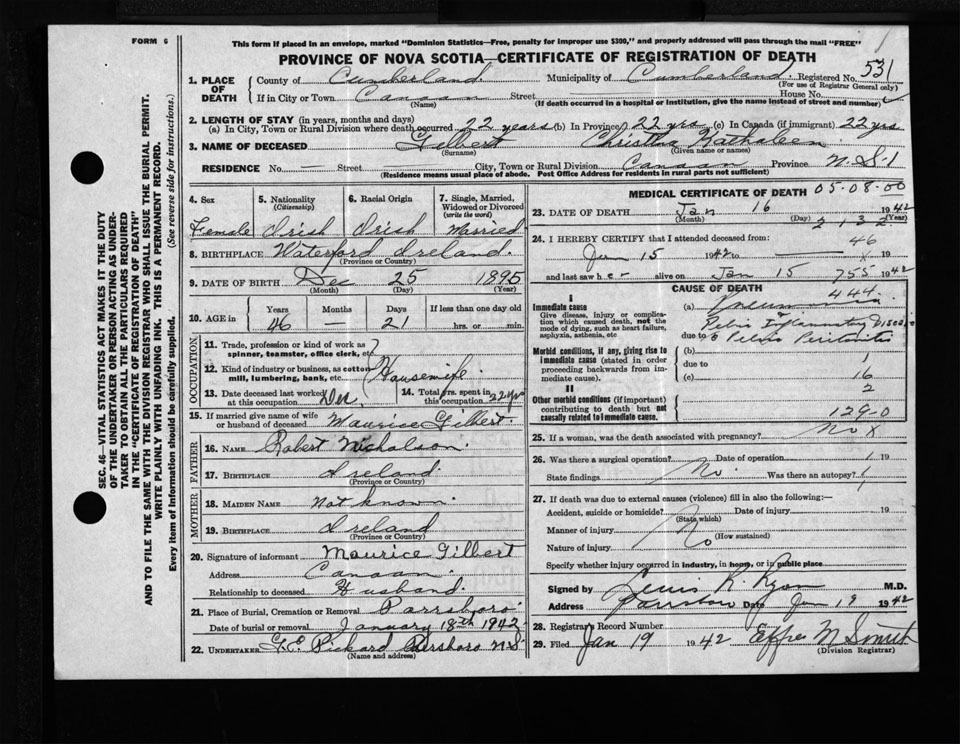 FORM 6
This form if placed in an envelope, marked "Dominion Statistics—Free, penalty for improper use $300," and properly addressed will pass through the mail "FREE"
PROVINCE OF NOVA SCOTIA—CERTIFICATE OF REGISTRATION OF DEATH
1. PLACE OF DEATH
County of Cumberland Municipality of Cumberland Registered No. 531
(For use of Registrar General only)
If in City or Town Canaan Street House No.
(Name) (If death occurred in a hospital or institution, give the name instead of street and number)
2. LENGTH OF STAY (in years, months and days)
(a) In City, Town or Rural Division where death occurred 22 years (b) In Province 22 yrs (c) In Canada (if immigrant) 22 yrs
3. NAME OF DECEASED Gilbert Christina Kathaleen
(Surname) (Given name or names)
RESIDENCE No. — Street — City, Town or Rural Division Canaan Province N.S.
(Residence means usual place of abode. Post Office Address for residents in rural parts not sufficient)
4. Sex Female
5. Nationality (Citizenship) Irish
6. Racial Origin Irish
7. Single, Married, Widowed or Divorced (write the word) Married
8. BIRTHPLACE Waterford Ireland
(Province or Country)
9. DATE OF BIRTH Dec 25 1895
(Month) (Day) (Year)
10. AGE in Years 46 Months — Days 21 If less than one day old hrs. or min.
OCCUPATION
11. Trade, profession or kind of work as spinner, teamster, office clerk, etc.
12. Kind of industry or business, as cotton mill, lumbering, bank, etc. Housewife
13. Date deceased last worked at this occupation Dec
14. Total yrs. spent in this occupation 22 yrs
15. If married give name of wife or husband of deceased Maurice Gilbert
FATHER
16. NAME Robert Nicholson
17. BIRTHPLACE Ireland
(Province or Country)
MOTHER
18. MAIDEN NAME Not known
19. BIRTHPLACE Ireland
(Province or Country)
20. Signature of informant Maurice Gilbert
Address Canaan
Relationship to deceased Husband
21. Place of Burial, Cremation or Removal Parrsboro
Date of burial or removal January 18th 1942
22. UNDERTAKER Pickard Parsboro N.S.
(Name and address)
MEDICAL CERTIFICATE OF DEATH 05-08-00
23. DATE OF DEATH Jan 16 1942
(Month) (Day)
2 1 3 2
24. I HEREBY CERTIFY that I attended deceased from:
46
Jan 15 1942 to — 19
and last saw her alive on Jan 15 755 1942
CAUSE OF DEATH
444
I
Immediate cause
Give disease, injury or complication which caused death, not the mode of dying, such as heart failure, asphyxia, asthenia, etc.
(a) Pneumonia
Pelvic Inflammatory Disease
due to Pelvic Peritonitis
Morbid conditions, if any, giving rise to immediate cause (stated in order proceeding backwards from immediate cause).
(b) 1
due to 1
(c) 16
2
II
Other morbid conditions (if important) contributing to death but not causally related to immediate cause.
129-0
25. If a woman, was the death associated with pregnancy? No X
26. Was there a surgical operation? Date of operation 19
State findings No Was there an autopsy?
27. If death was due to external causes (violence) fill in also the following:—
Accident, suicide or homicide? Date of injury 19
(State which)
Manner of injury No
(How sustained)
Nature of injury
Specify whether injury occurred in industry, in home, or in public place
Signed by Lewis R. Ryan M.D.
Address Date Jan 19 1942
28. Registrar's Record Number
29. Filed Jan 19 1942 Effie M Smith
(Division Registrar)
SEC. 46—VITAL STATISTICS ACT MAKES IT THE DUTY
OF THE UNDERTAKER OR PERSON ACTING AS UNDER-
TAKER TO OBTAIN ALL THE PARTICULARS REQUIRED
IN THE "CERTIFICATE OF REGISTRATION OF DEATH"
AND TO FILE THE SAME WITH THE DIVISION REGISTRAR WHO SHALL ISSUE THE BURIAL PERMIT.
WRITE PLAINLY WITH UNFADING INK. THIS IS A PERMANENT RECORD.
Every item of information should be carefully supplied. (See reverse side for instructions.)